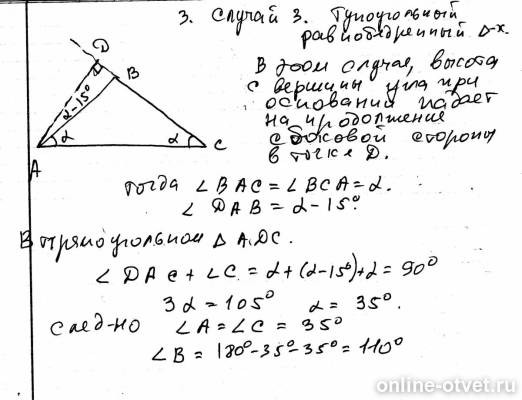 3. Случай 3. Тупоугольный
равнобедренный Δ-к.
В этом случае, высота
с вершины угла при
основании падает
на продолжение
боковой стороны
в точке D.
D
B
α-15°
α
α
A
C
тогда ∠BAC=∠BCA=α.
∠DAB=α-15°
В прямоугольном ΔADC.
∠DAC+∠C=α+(α-15°)+α=90°
3α=105° α=35°.
след-но ∠A=∠C=35°
∠B=180°-35°-35°=110°
online-otvet.ru